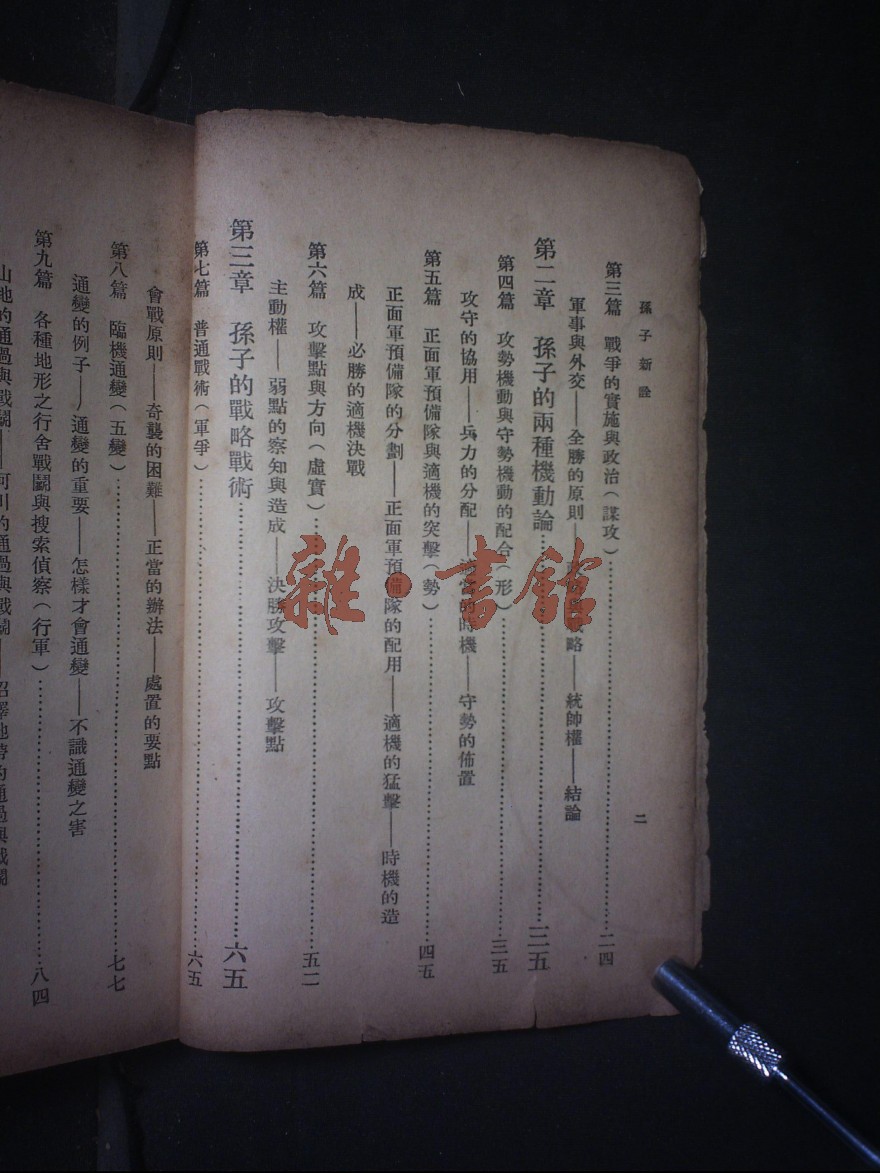 孫子新詮
二
第三篇 戰爭的實施與政治(謀攻)……二四
軍事與外交——全勝的原則——略——統帥權——結論
第二章 孫子的兩種機動論……三五
第四篇 攻勢機動與守勢機動的配合(形)……三五
攻守的協用——兵力的分配——適當的時機——守勢的佈置
第五篇 正面軍預備隊與適機的突擊(勢)……四五
正面軍預備隊的分劃——正面軍預備隊的配用——適機的猛擊——時機的造
成——必勝的適機決戰
第六篇 攻擊點與方向(虛實)……五二
主動權——弱點的察知與造成——決勝攻擊——攻擊點
第三章 孫子的戰略戰術……六五
第七篇 普通戰術(軍爭)……六五
會戰原則——奇襲的困難——正當的辦法——處置的要點
第八篇 臨機通變(五變)……七七
通變的例子——通變的重要——怎樣才會通變——不識通變之害
第九篇 各種地形之行舍戰鬭與搜索偵察(行軍)……八四
山地的通過與戰鬭——河川的通過與戰鬭——沼澤地帶的通過與戰鬭
雜·書館